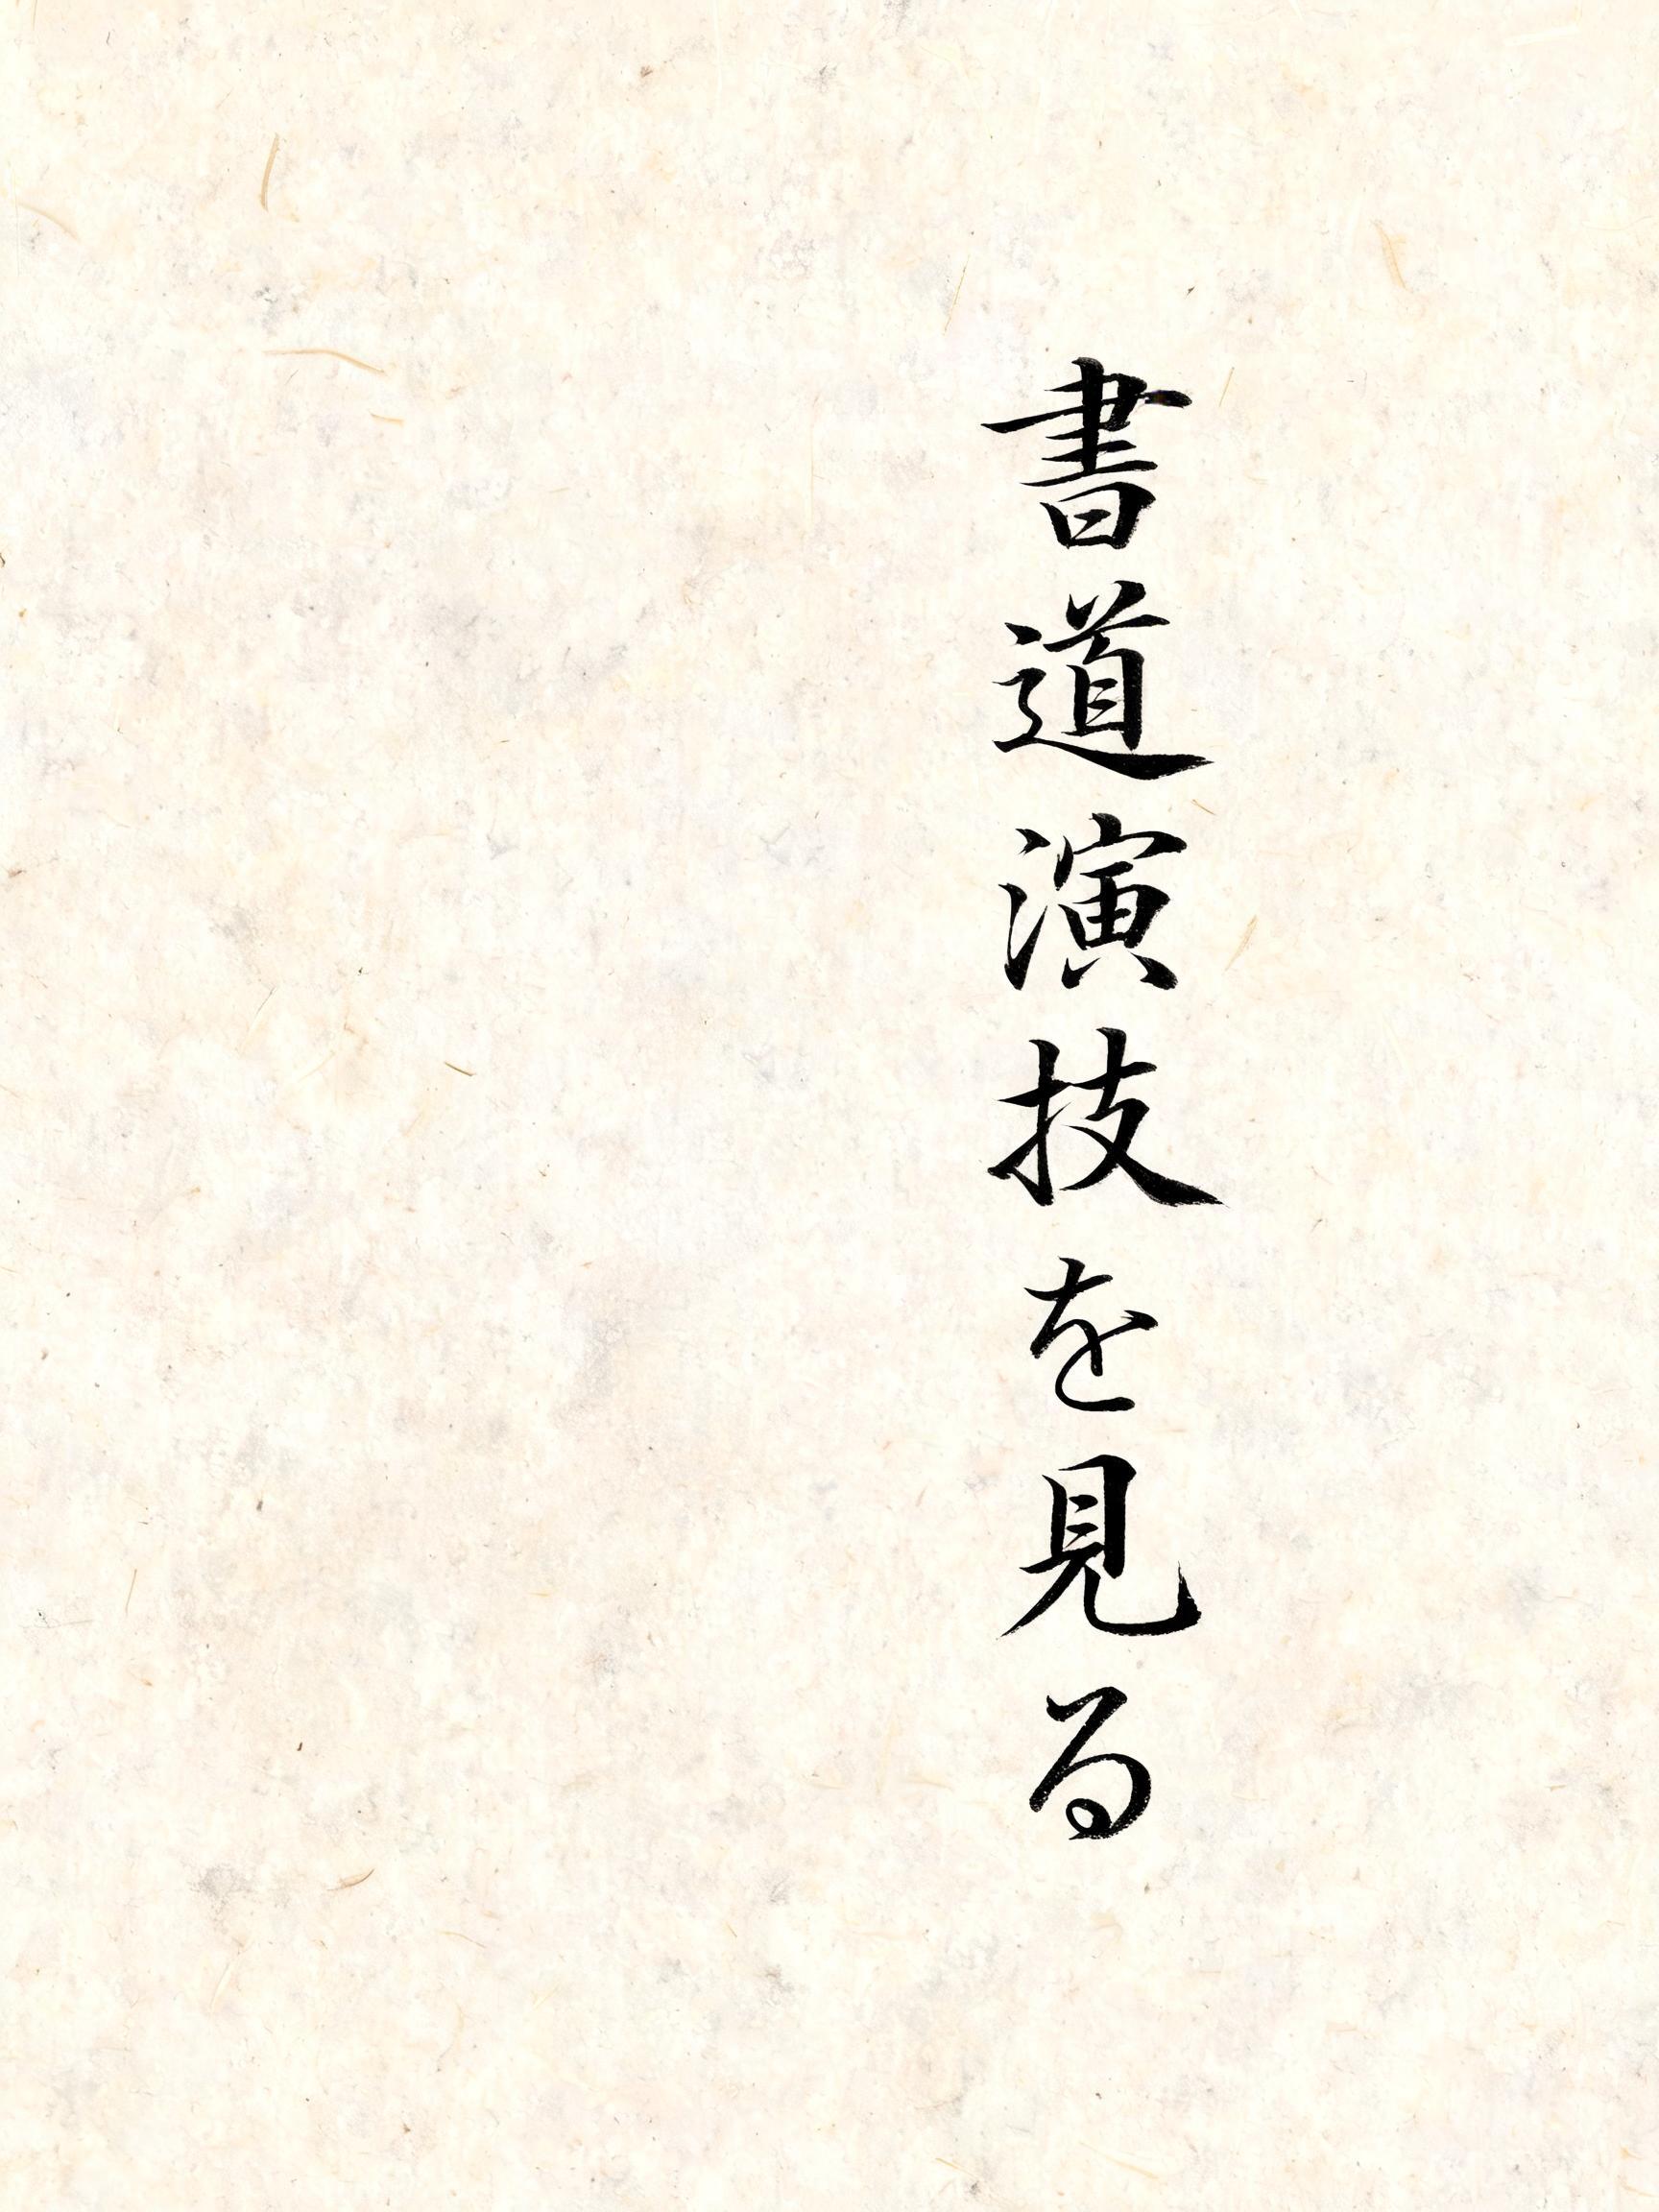 書道演技を見る